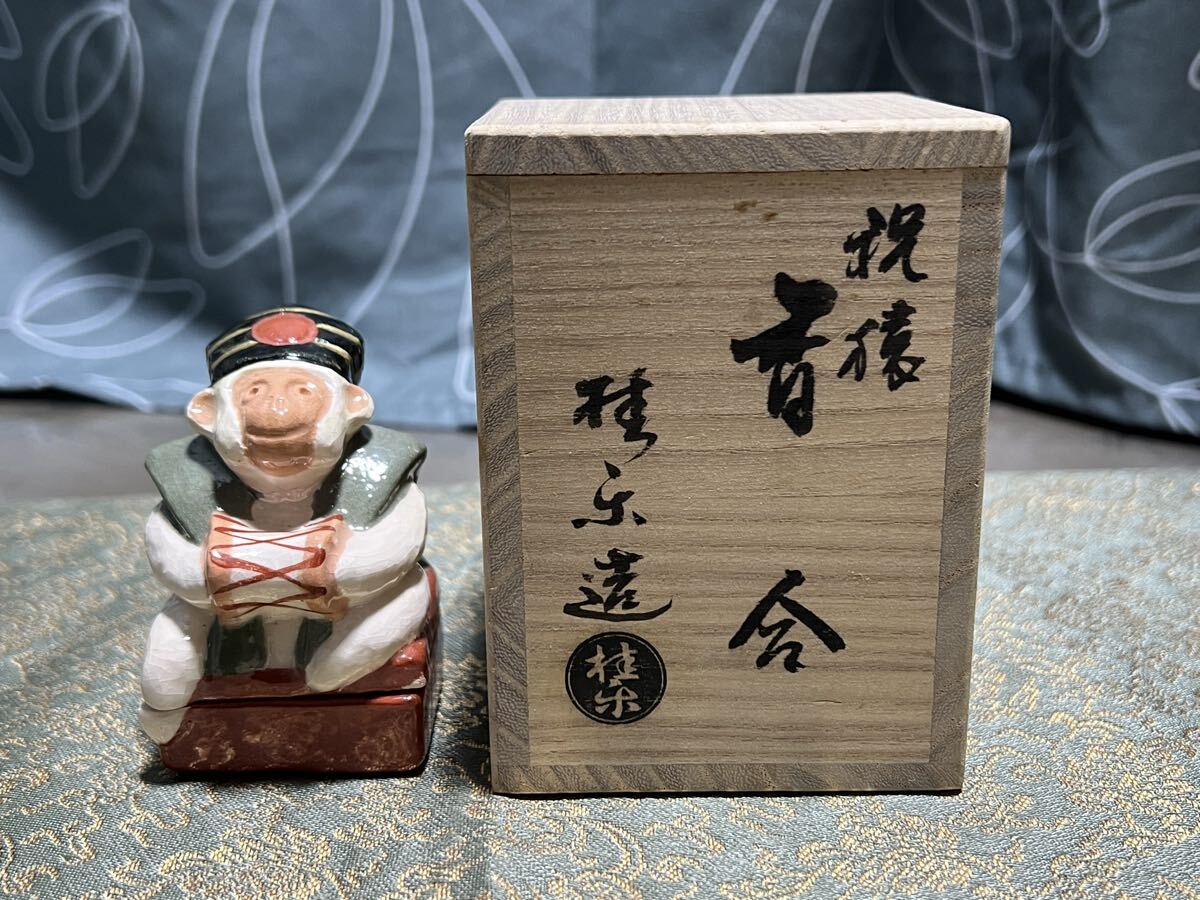 祝猿
香合
桂楽造
桂楽